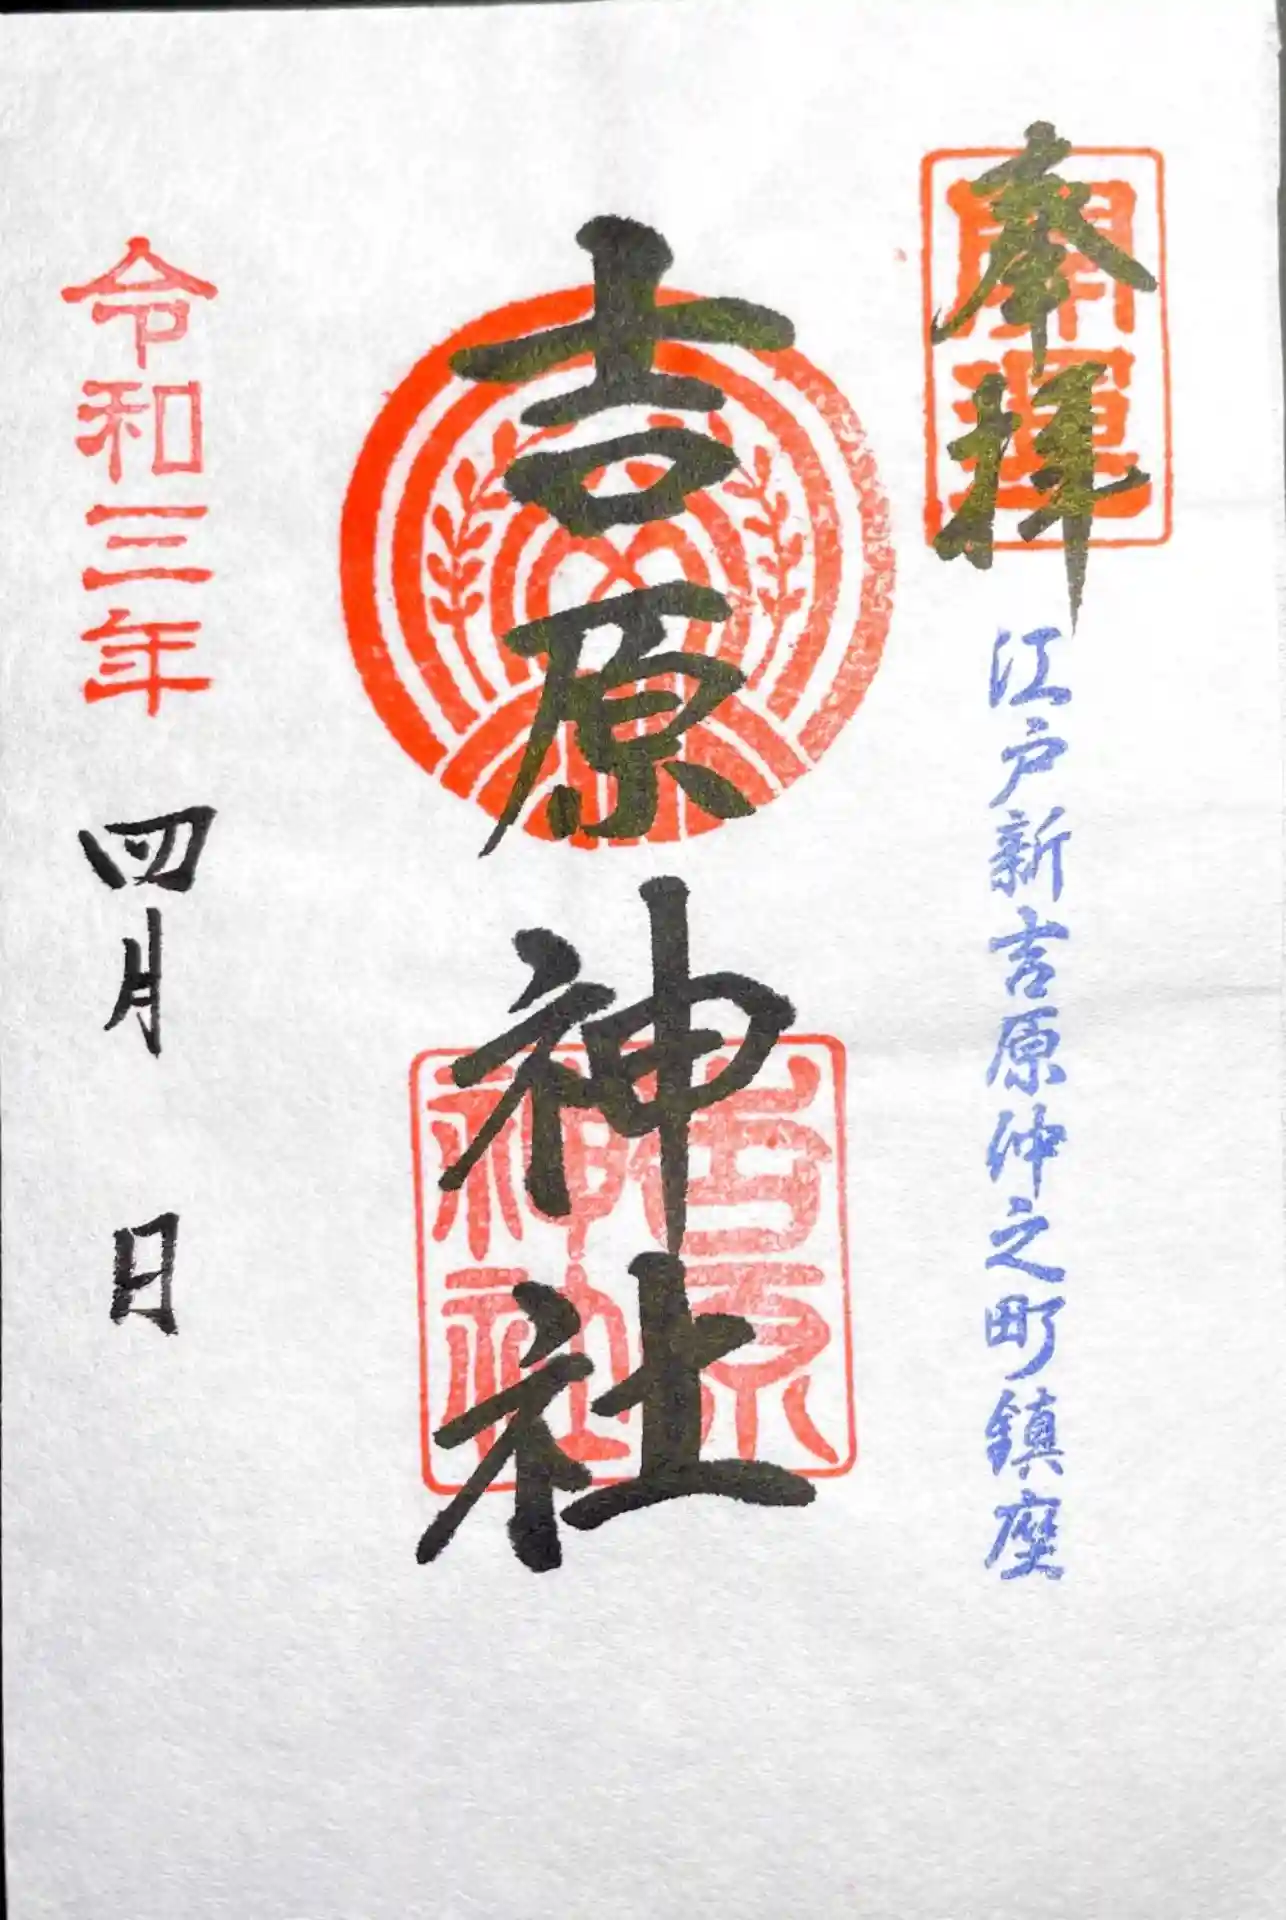 奉拝
開運
江戸新吉原仲之町鎮座
吉原神社
吉原
神社
令和三年
四月
日